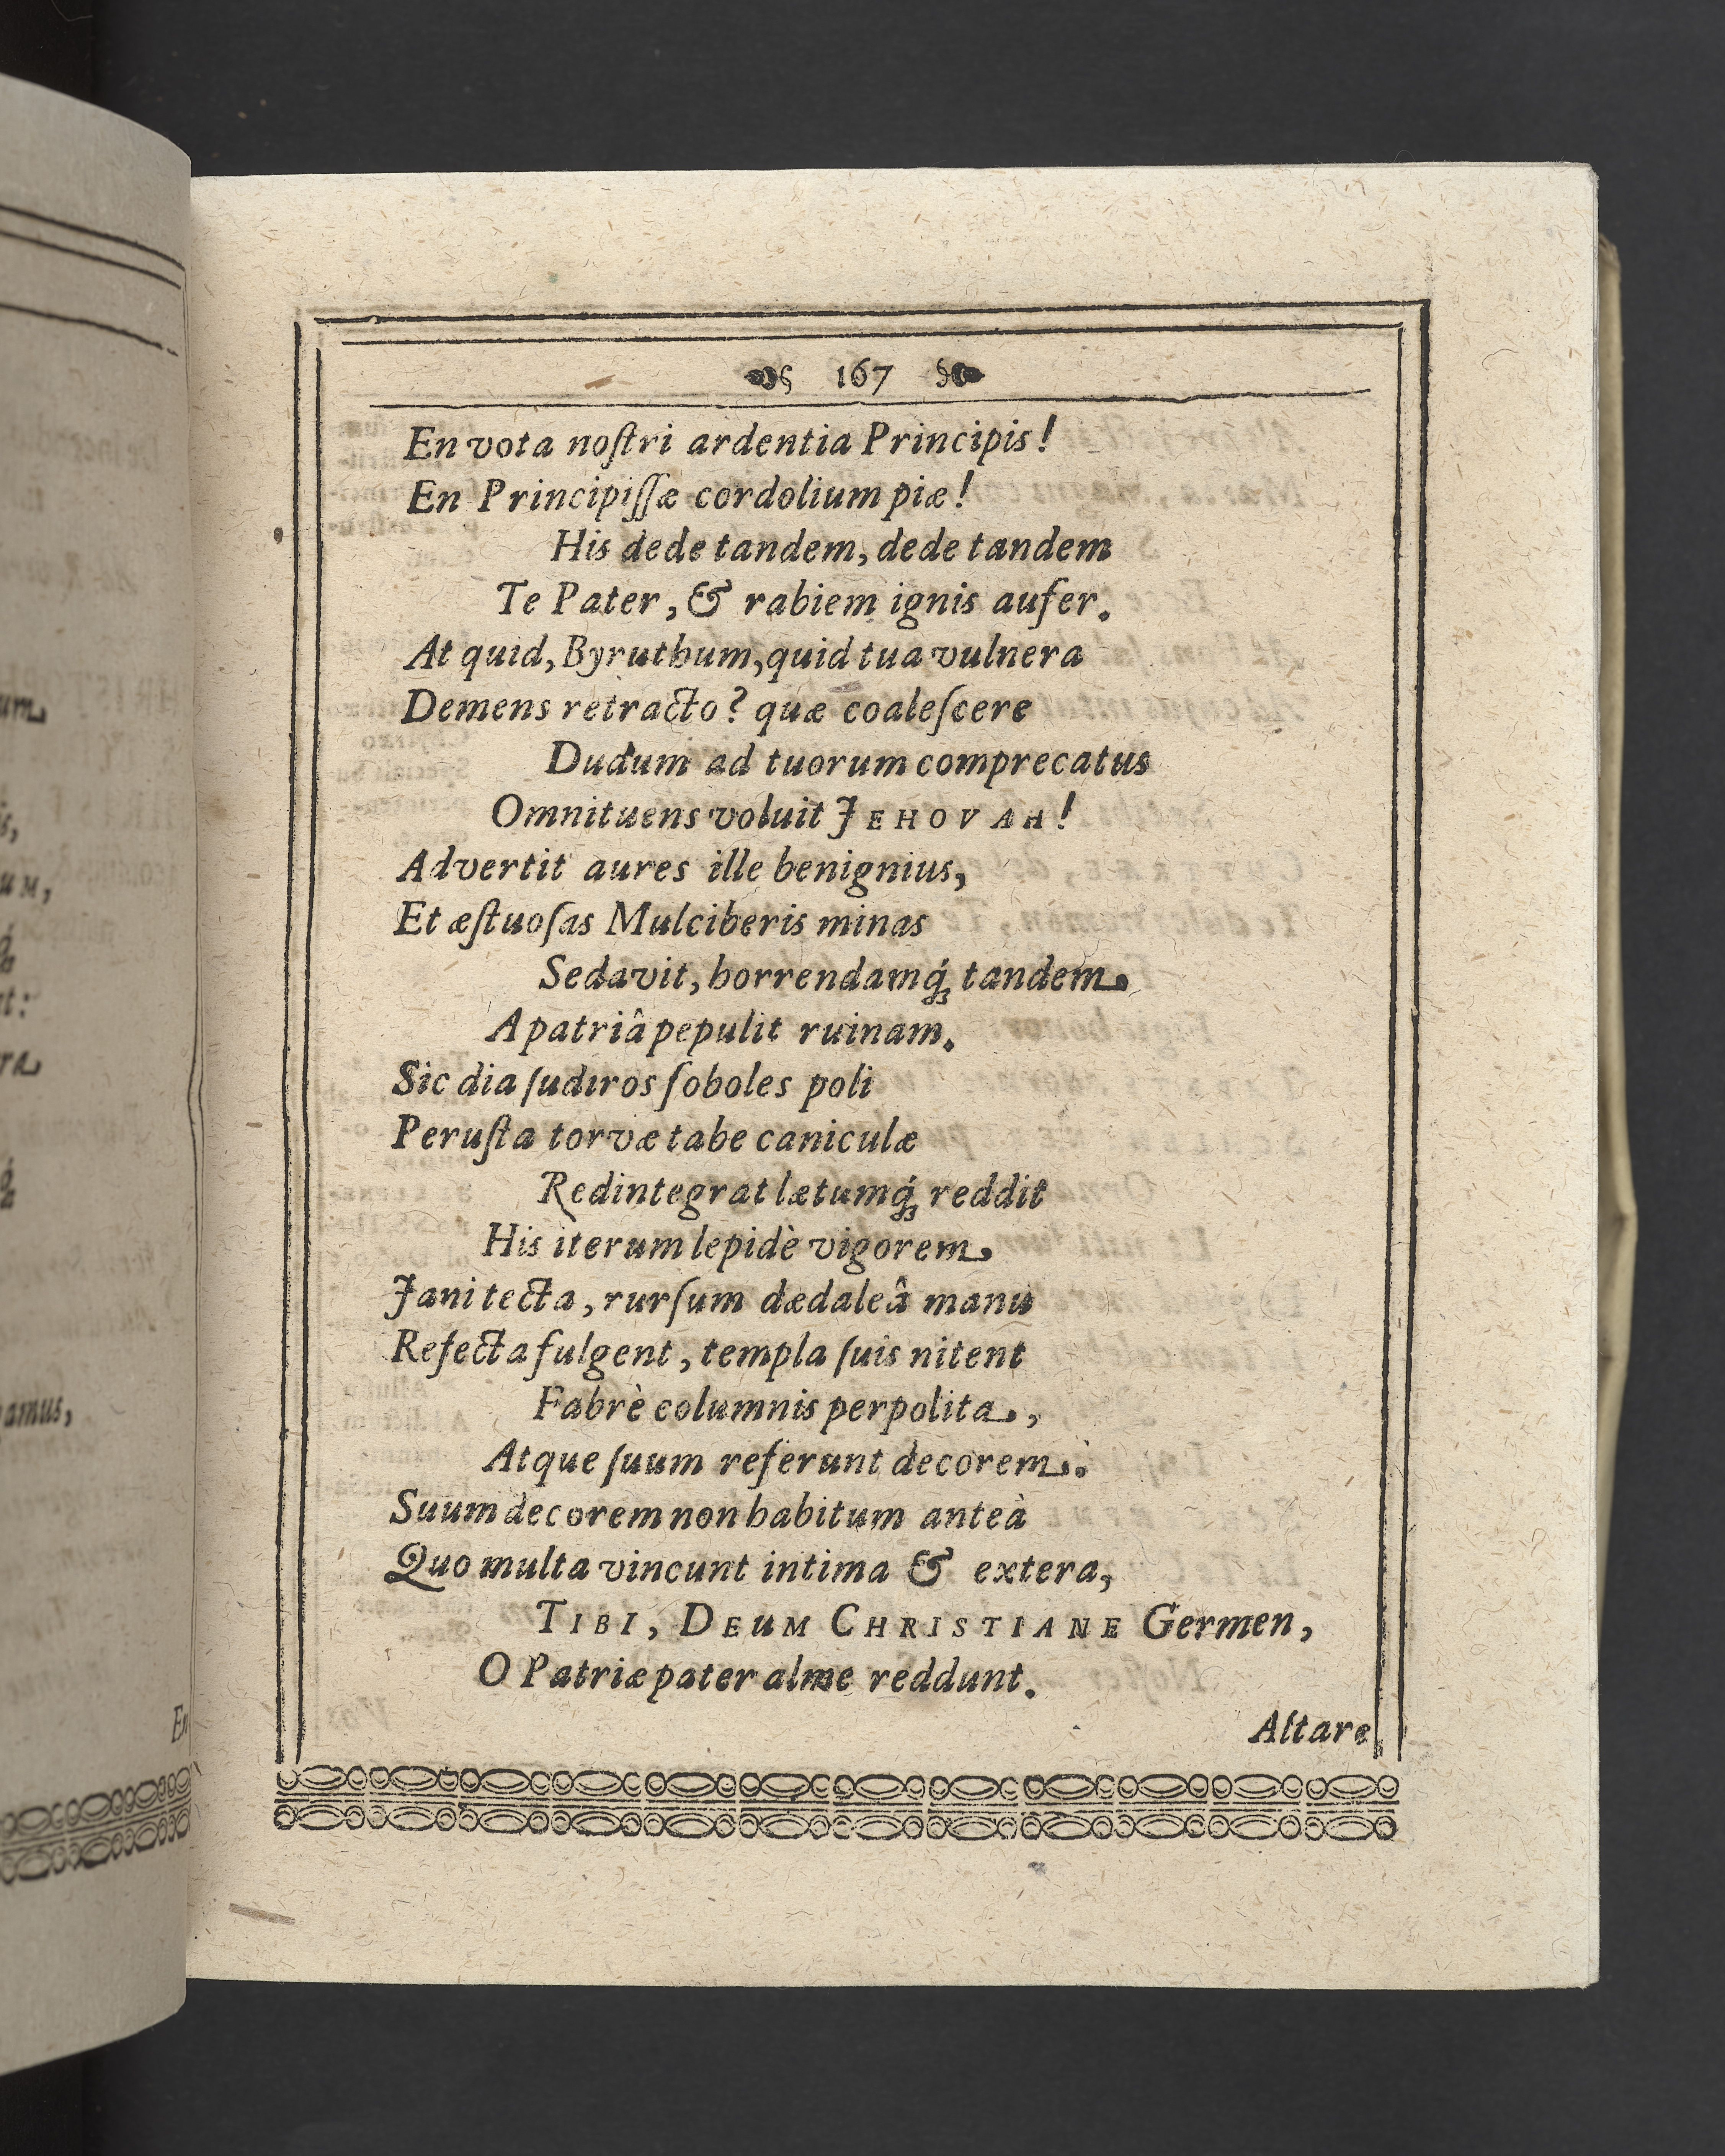 167
En vota noſtri ardentia Principis!
En Principiſſæ cordolium piæ!
His dede tandem, dede tandem
Te Pater, & rabiem ignis aufer.
At quid, Byruthum, quid tua vulnera
Demens retracto? quæ coaleſcere
Dudum ad tuorum comprecatus
Omnituens voluit JEHOVAH!
Advertit aures ille benignius,
Et æſtuoſas Mulciberis minas
Sedavit, horrendamq́ꝫ tandem
A patriâ pepulit ruinam.
Sic dia ſudiros ſoboles poli
Peruſta torvæ tabe caniculæ
Redintegrat lætumq́ꝫ reddit
His iterum lepidè vigorem
Jani tecta, rurſum dædaleâ manu
Refecta fulgent, templa ſuis nitent
Fabrè columnis perpolita,
Atque ſuum referunt decorem.
Suum decorem non habitum anteà
Quo multa vincunt intima & extera,
TIBI, DEUM CHRISTIANE Germen,
O Patriæ pater alme reddunt.
Altare
um
amus,
En